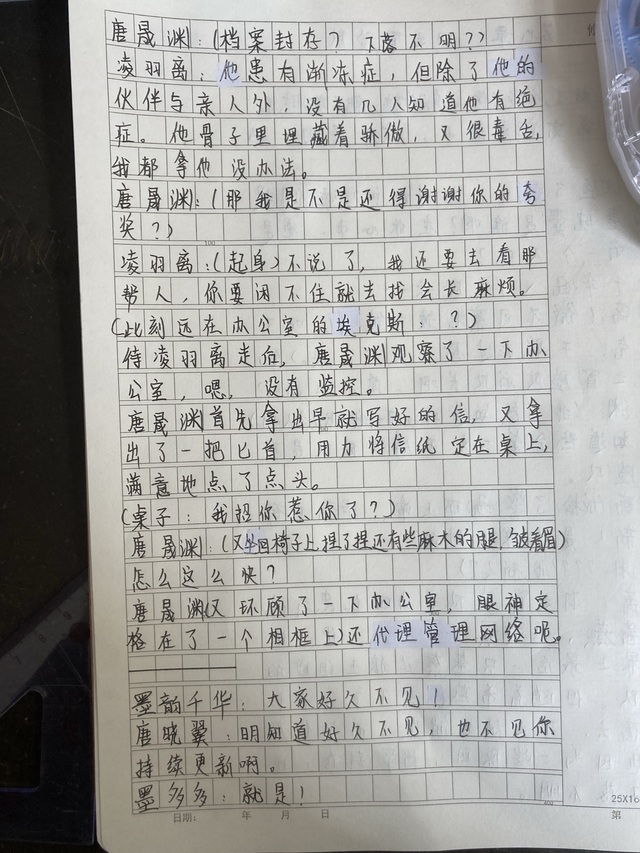 唐晟渊:(档案封存?下落不明??)
凌羽离:他患有渐冻症,但除了他的
伙伴与亲人外,没有几人知道他有绝
症。他骨子里埋藏着骄傲,又很毒舌,
我都拿他没办法。
唐晟渊:(那我是不是还得谢谢你的夸
奖?)
凌羽离:(起身)不说了,我还要去看那
帮人,你要闲不住就去找会长麻烦。
(此刻远在办公室的埃克斯:?)
待凌羽离走后,唐晟渊观察了一下办
公室,嗯,没有监控。
唐晟渊首先拿出早就写好的信,又拿
出了一把匕首,用力将信纸定在桌上,
满意地点了点头。
(桌子:我招你惹你了?)
唐晟渊:(又坐回椅子上,捏了捏还有些麻木的腿,皱着眉)
怎么这么快?
唐晟渊(又环顾了一下办公室,眼神定
格在了一个相框上)还代理管理网络呢。
墨韵千华:大家好久不见!
唐晓翼:明知道好久不见,也不见你
持续更新啊。
墨多多:就是!
日期: 年 月 日
25X16
第